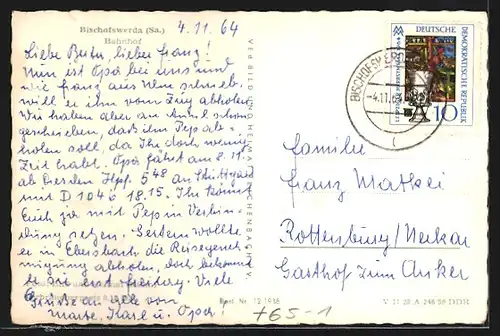 Bischofswerda (Sa.)
Bahnhof
4.11.64
Liebe Berta, lieber Franz!
Nun ist Opa bei uns und
wie Franz aus Wien schrieb,
will er ihn vom Zug abholen.
Wir haben aber an Emil schon
geschrieben, daß ihn Pepi abho-
holen soll, da Ihr doch wenig
Zeit habt. Opa fährt am 8.11.
ab Dresden Hpf. 5 48 an Stuttgart
mit D 1046 18.15. Ihr könnt
Euch ja mit Pepi in Verbin-
dung setzen. Gestern wollte
er in Ebersbach die Reisegeneh-
migung abholen, doch bekommt
er sie erst Freitag. Viele
Grüße an alle von
Marie, Karl u. Opa!
DEUTSCHE
DEMOKRATISCHE REPUBLIK
10
BISCHOFSWERDA
-4.11.64
Familie
Franz Matkei
Rottenburg/Neckar
Gasthof zum Anker
Best. Nr. 12 1938
V 11 28 A 246 59 DDR
+65-1